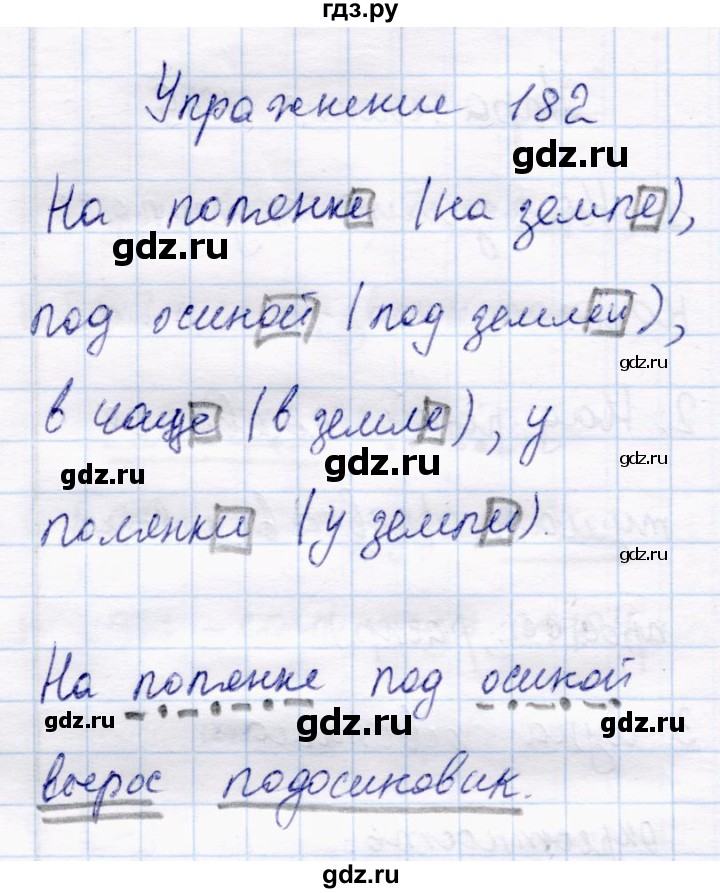 гдз.ру
Упражнение 182
gdz.ru
На полянке (на земле),
gdz.ru
под осиной (под землёй),
gdz.ru
в чаще (в земле), у
gdz.ru
gdz.ru
gdz.ru
полянки (у земли).
gdz.ru
На полянке под осиной
gdz.ru
gdz.ru
gdz.ru
вырос подосиновик.
gdz.ru